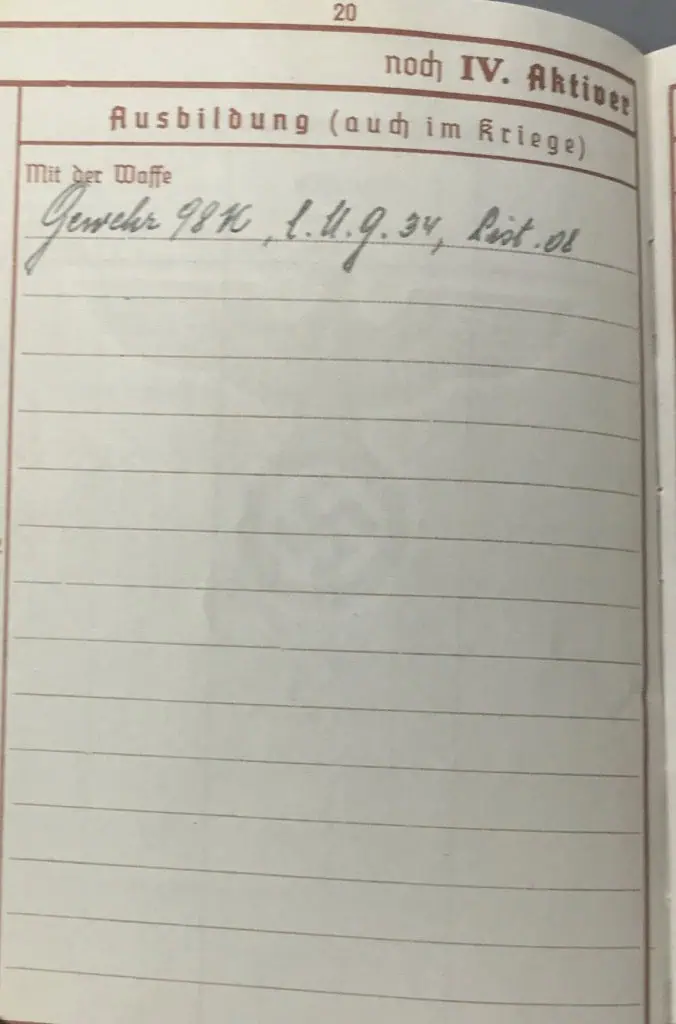 20
noch IV. Aktiver
Ausbildung (auch im Kriege)
Mit der Waffe
Gewehr 98K, l. M. g. 34, Pist. 08